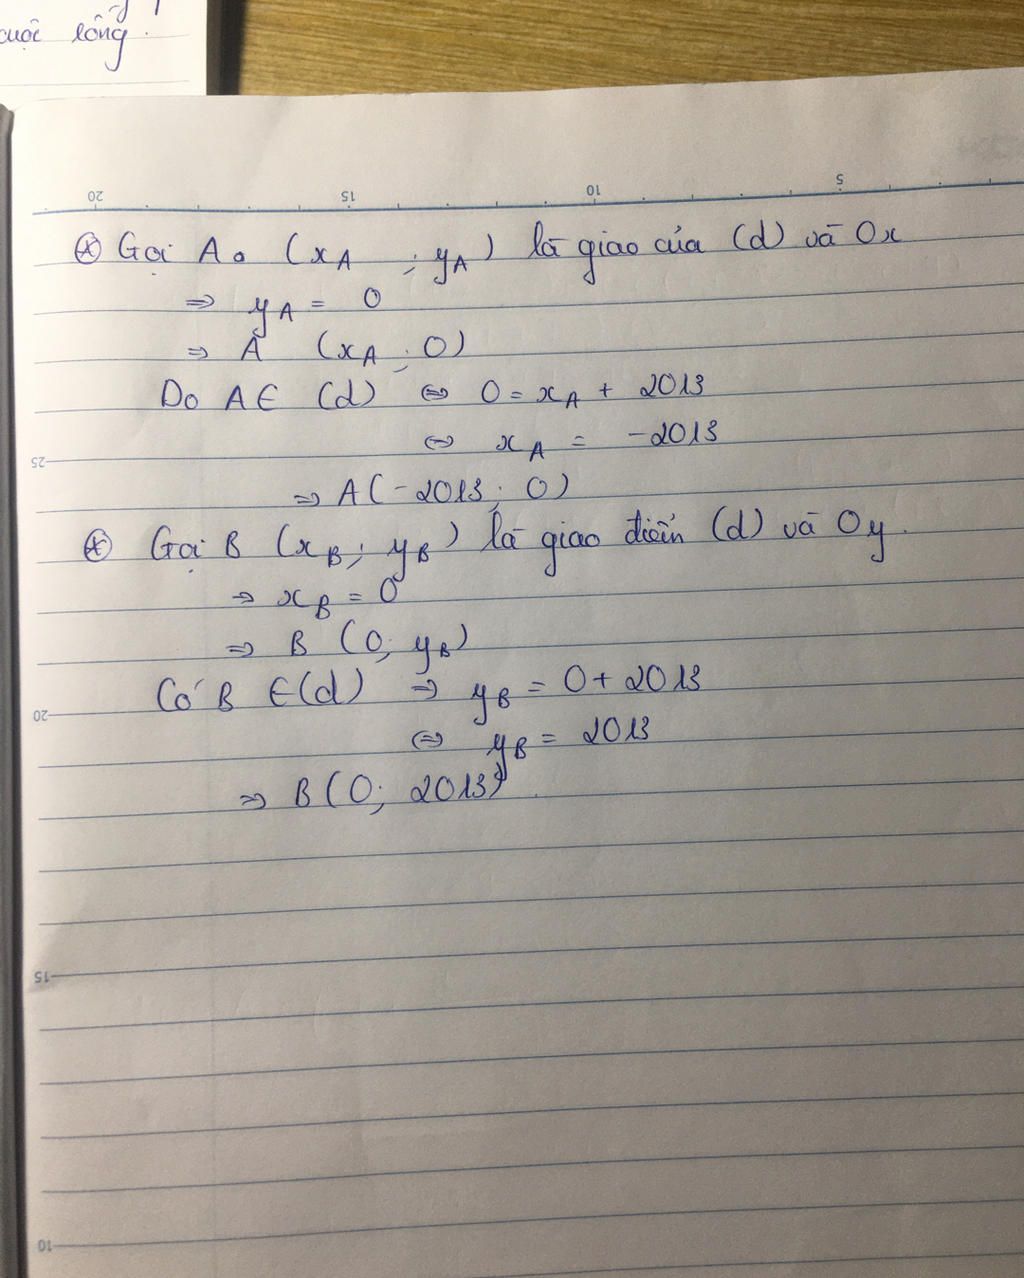 cuộc sống.
20 15 10 5
⊛ Gọi A (x_A ; y_A) là giao của (d) và Ox
⇒ y_A = 0
⇒ A (x_A ; 0)
Do A ∈ (d) ⇔ 0 = x_A + 2013
⇔ x_A = -2013
25
⇒ A(-2013; 0)
⊛ Gọi B (x_B; y_B) là giao điểm (d) và Oy.
⇒ x_B = 0
⇒ B (0; y_B)
Có B ∈ (d) ⇒ y_B = 0 + 2013
20
⇔ y_B = 2013
⇒ B (0; 2013)
15
10